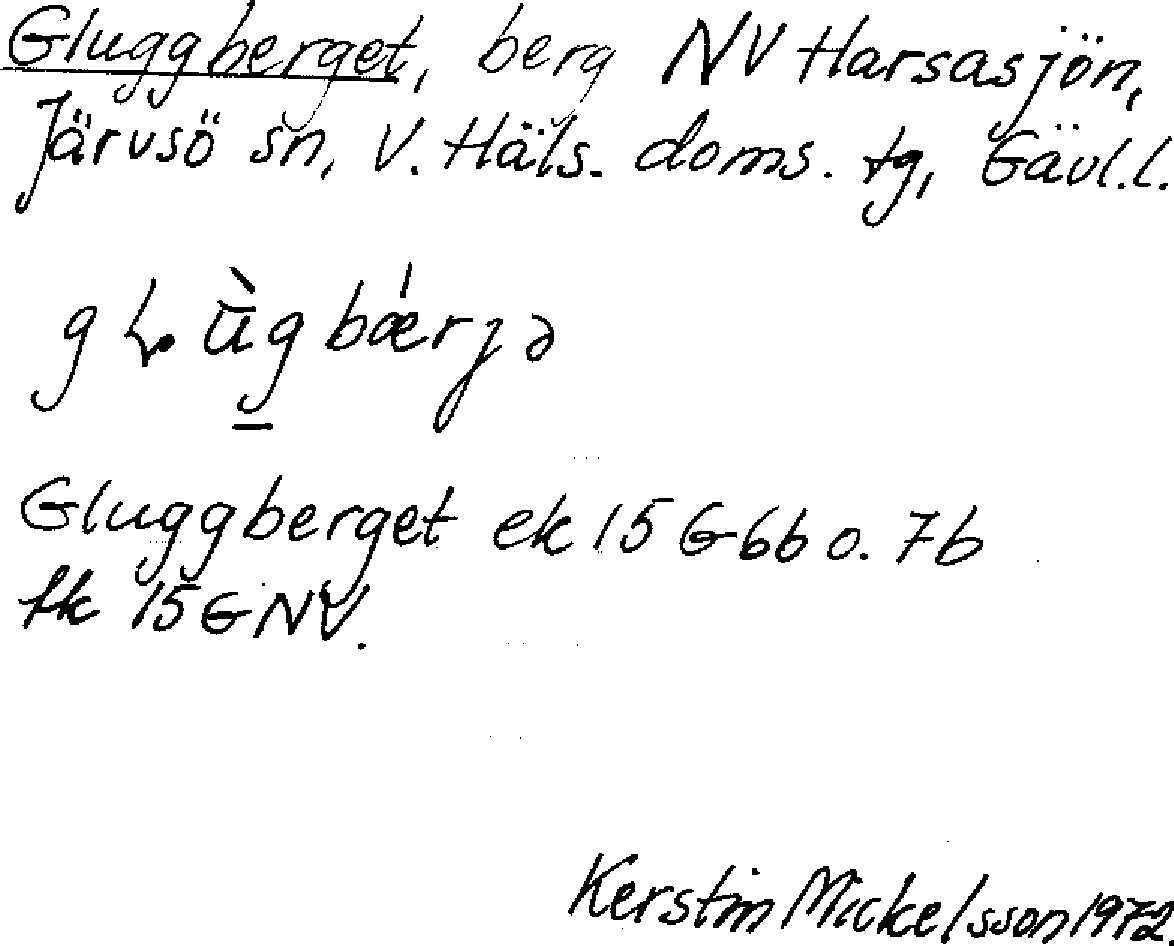 Gluggberget, berg NV Harsasjön,
Järvsö sn, V. Häls. doms. tg, Gävl.l.
gɽùg̲bǽrjə
Gluggberget ek 15 G6b o. 7b
fk 15 GNV.
Kerstin Mickelsson 1972.